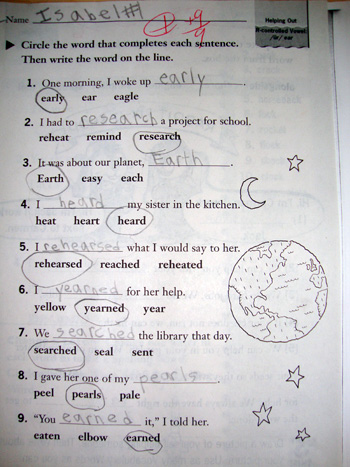 Name Isabel #1
+9/9
Helping Out
R-controlled Vowel
/ûr/ ear
▶ Circle the word that completes each sentence.
Then write the word on the line.
1. One morning, I woke up early.
early ear eagle
2. I had to research a project for school.
reheat remind research
3. It was about our planet, Earth.
Earth easy each
4. I heard my sister in the kitchen.
heat heart heard
5. I rehearsed what I would say to her.
rehearsed reached reheated
6. I yearned for her help.
yellow yearned year
7. We searched the library that day.
searched seal sent
8. I gave her one of my pearls.
peel pearls pale
9. "You earned it," I told her.
eaten elbow earned